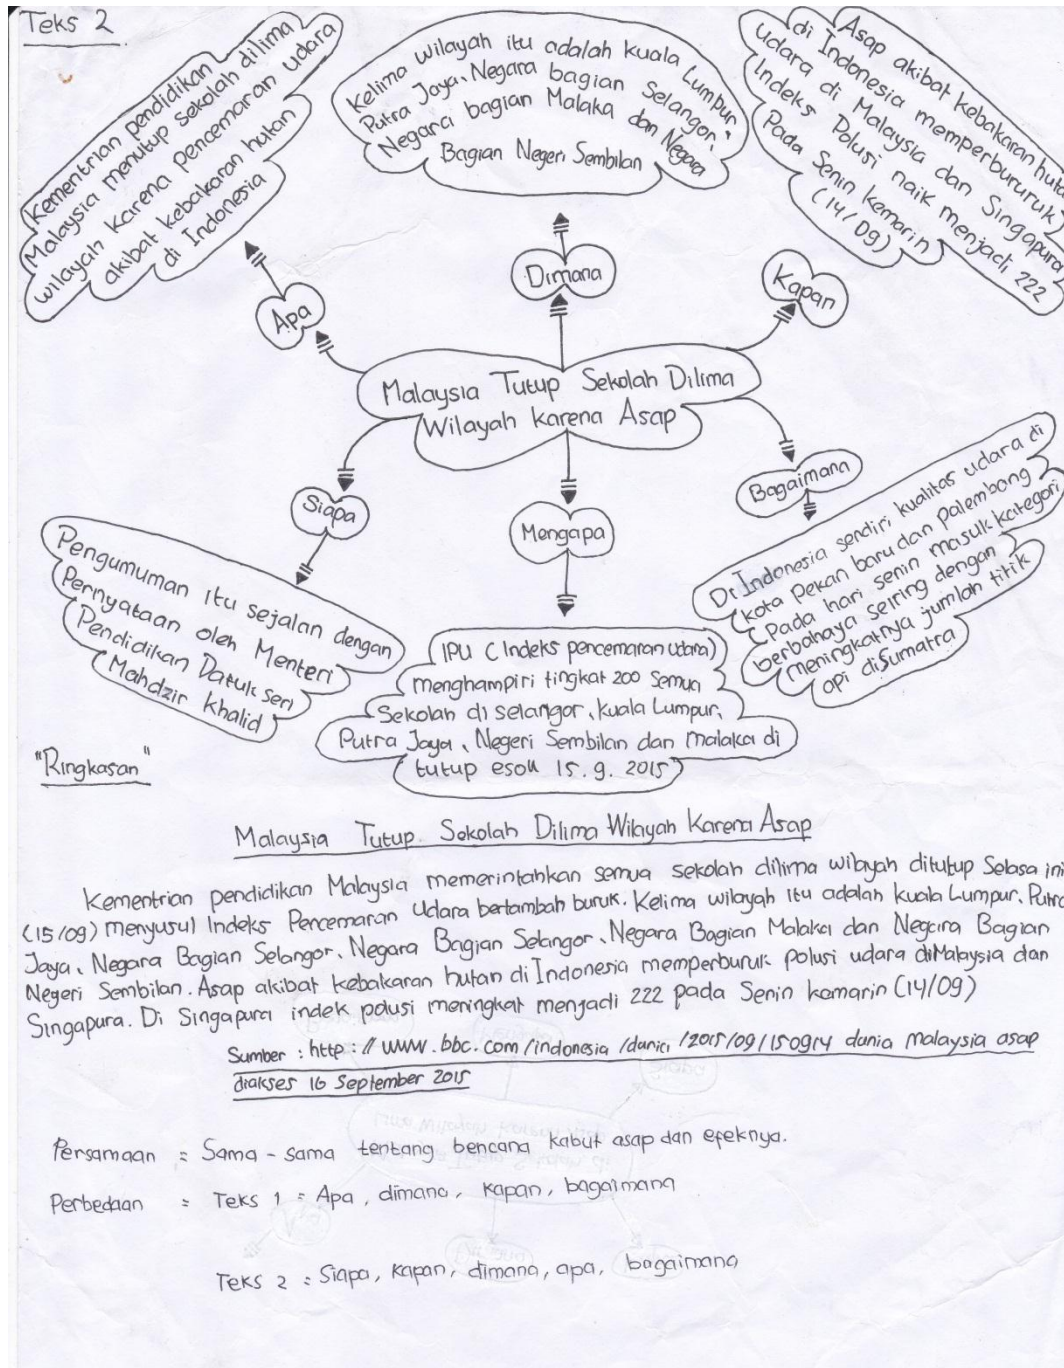 Teks 2
Kementrian pendidikan
Malaysia menutup sekolah dilima
wilayah karena pencemaran udara
akibat kebakaran hutan
di Indonesia
Kelima wilayah itu adalah kuala Lumpur,
Putra Jaya, Negara bagian Selangor,
Negara bagian Malaka dan Negara
Bagian Negeri Sembilan
Asap akibat kebakaran huta
di Indonesia memperbururuk
udara di Malaysia dan Singapura
Indeks Polusi naik menjadi 222
Pada Senin kemarin
(14/09)
Apa
Dimana
Kapan
Malaysia Tutup Sekolah Dilima
Wilayah karena Asap
Siapa
Mengapa
Bagaimana
Pengumuman itu sejalan dengan
Pernyataan oleh Menteri
Pendidikan Datuk seri
Mahdzir Khalid
IPU ( Indeks pencemaran udara)
menghampiri tingkat 200 semua
Sekolah di selangor, kuala Lumpur,
Putra Jaya, Negeri Sembilan dan malaka di
tutup esok 15.9.2015
Di Indonesia sendiri kualitas udara di
kota Pekan baru dan Palembang
Pada hari senin masuk kategori
berbahaya seiring dengan
meningkatnya jumlah titik
api diSumatra
"Ringkasan"
Malaysia Tutup Sekolah Dilima Wilayah Karena Asap
Kementrian pendidikan Malaysia memerintahkan semua sekolah dilima wilayah ditutup Selasa ini
(15/09) menyusul Indeks Pencemaran Udara bertambah buruk. Kelima wilayah itu adalah kuala Lumpur, Putra
Jaya, Negara Bagian Selangor, Negara Bagian Selangor, Negara Bagian Malaka dan Negara Bagian
Negeri Sembilan. Asap akibat kebakaran hutan di Indonesia memperburuk polusi udara diMalaysia dan
Singapura. Di Singapura indek polusi meningkat menjadi 222 pada Senin kamarin (14/09)
Sumber : http : // www.bbc.com/indonesia /dunia /2015/09/150914 dunia malaysia asap
diakses 16 September 2015
Persamaan = Sama - sama tentang bencana kabut asap dan efeknya.
Perbedaan = Teks 1 = Apa, dimana, kapan, bagaimana
Teks 2 = Siapa, kapan, dimana, apa, bagaimana